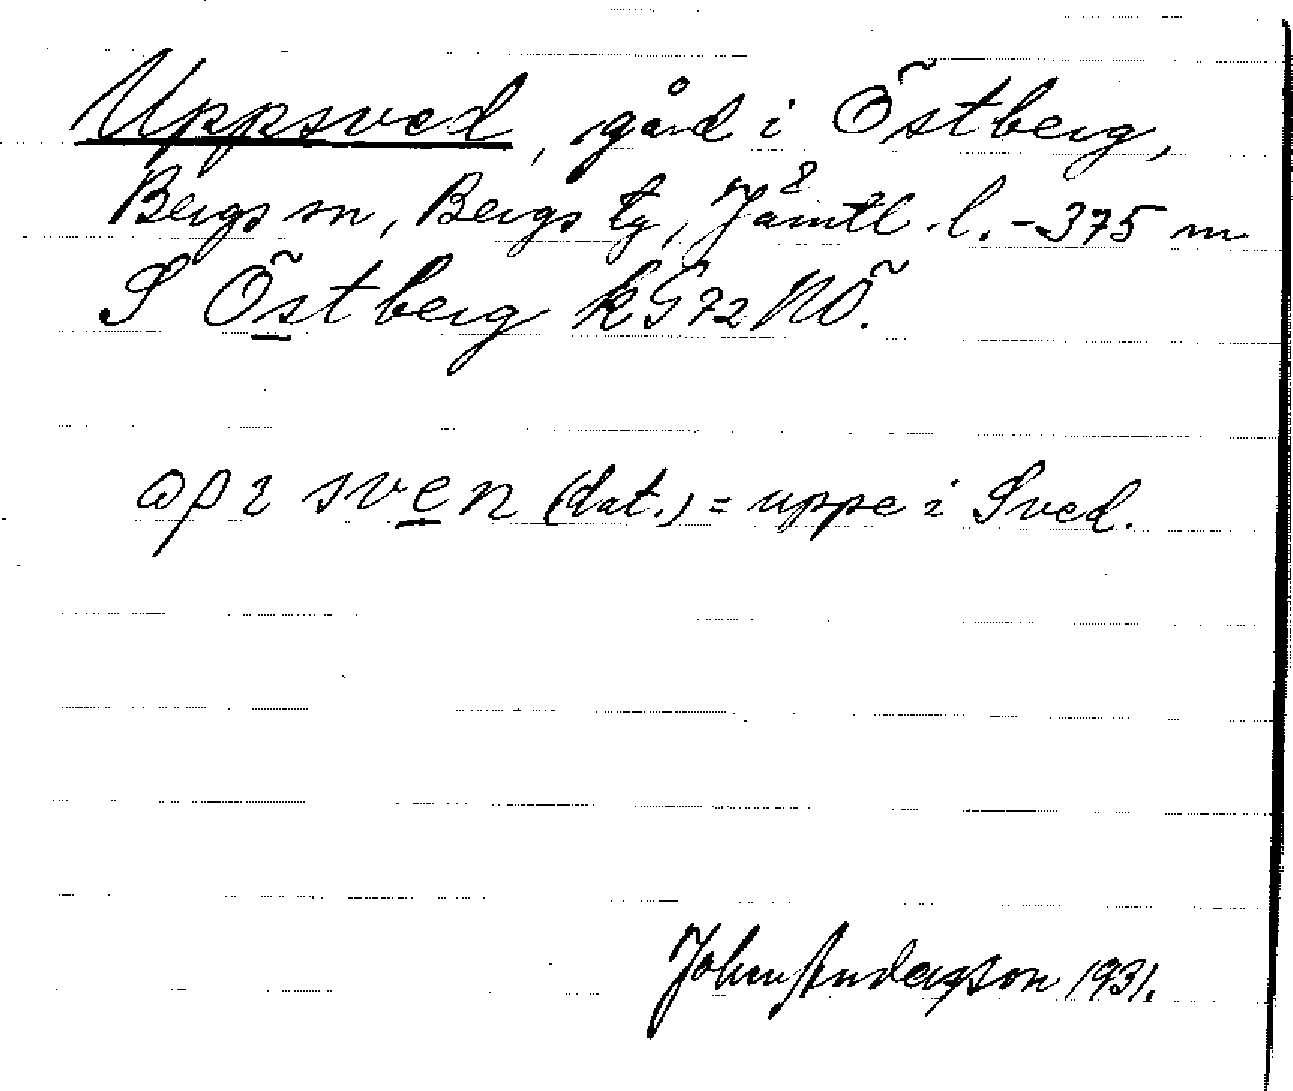 Uppsved, gård i Östberg,
Bergs sn, Bergs tg, Jämtl. l. - 375 m
S Östberg k G 72 NÖ.
(dat.) = uppe i Sved.
Johan Andersson 1931.